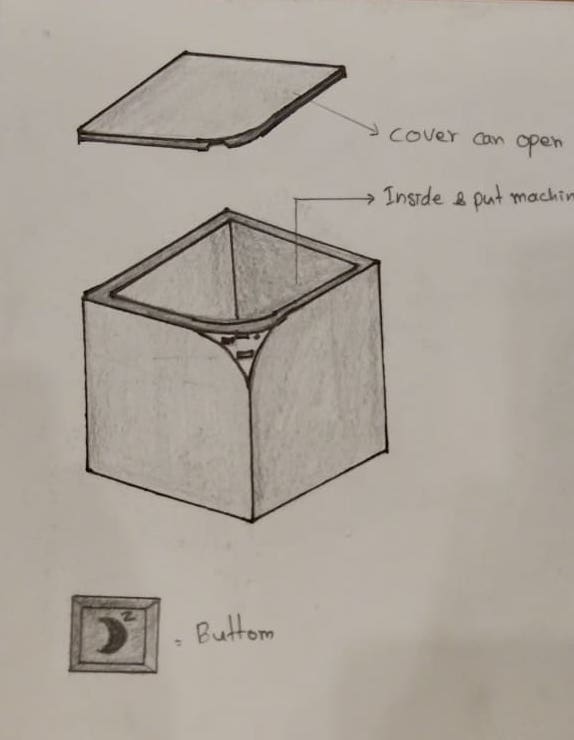 cover can open
Inside & put machin
z
= Buttom